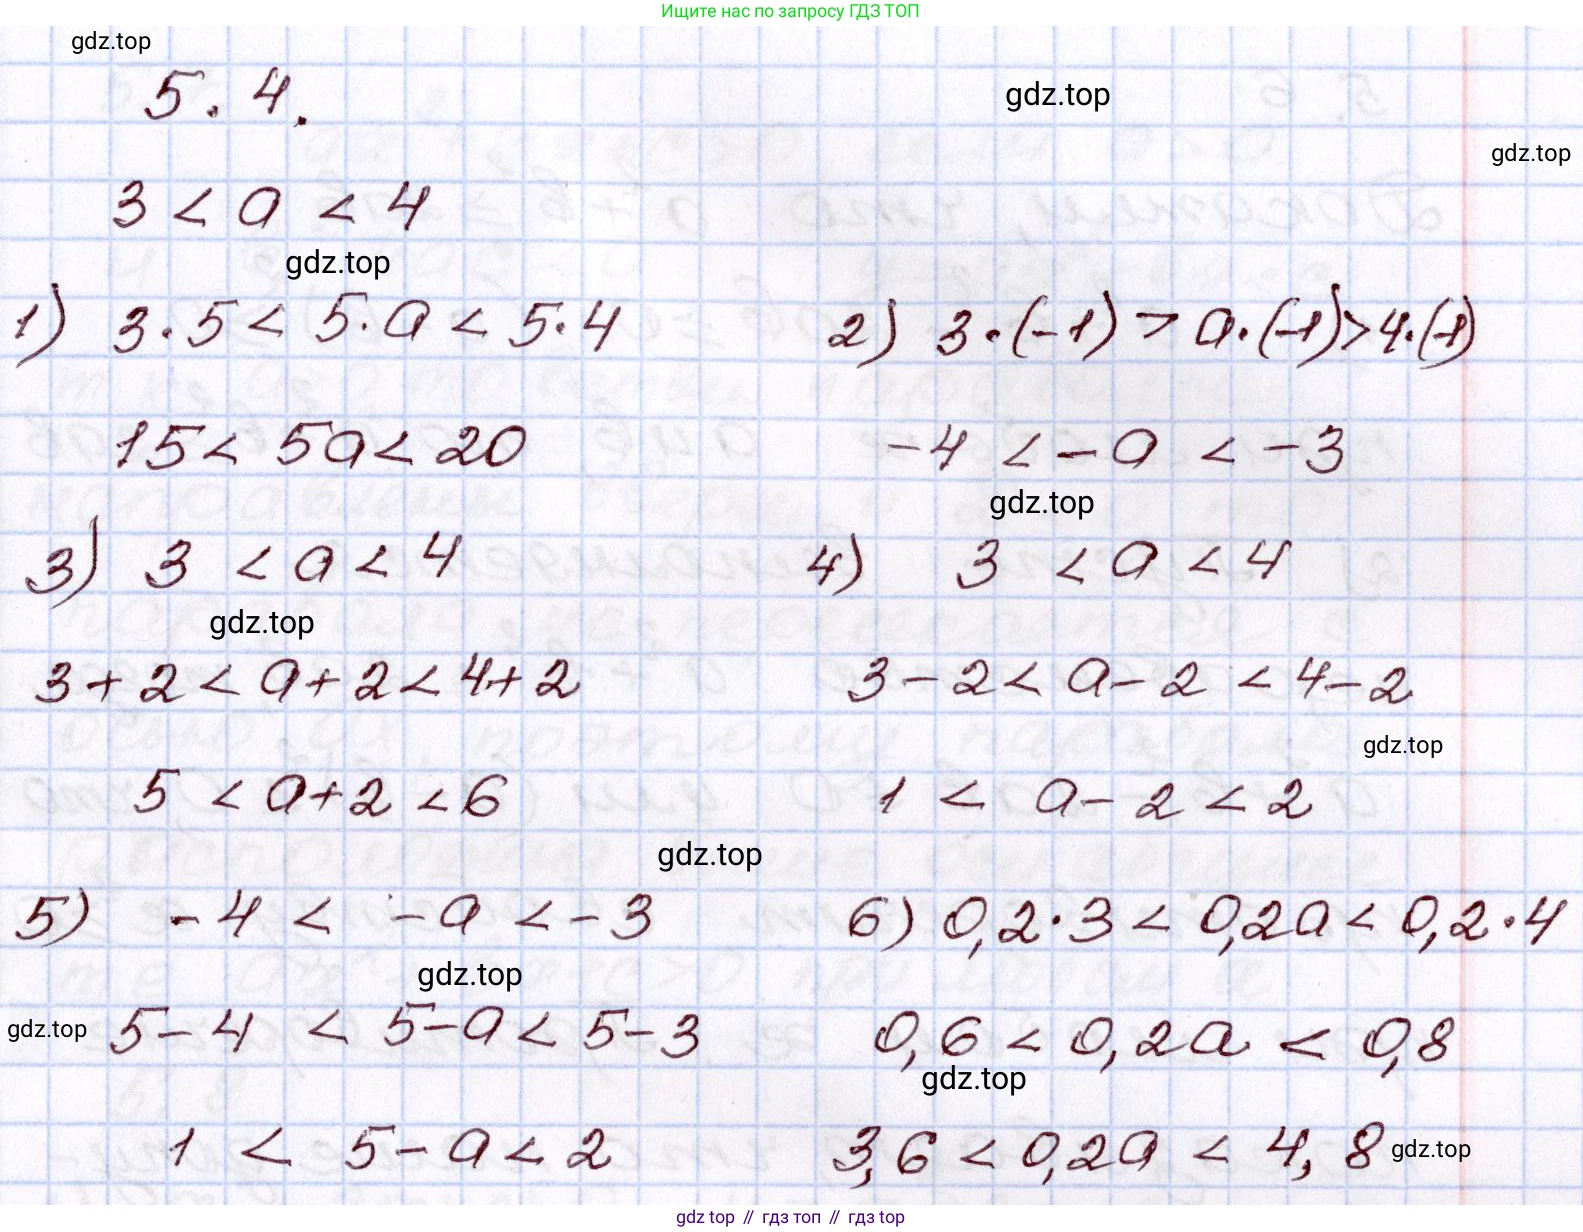 Ищите нас по запросу ГДЗ ТОП
gdz.top
5.4.
gdz.top
gdz.top
3 < a < 4
gdz.top
1) 3·5 < 5·a < 5·4
2) 3·(-1) > a·(-1) > 4·(-1)
15 < 5a < 20
-4 < -a < -3
gdz.top
3) 3 < a < 4
4) 3 < a < 4
gdz.top
3+2 < a+2 < 4+2
3-2 < a-2 < 4-2
gdz.top
5 < a+2 < 6
1 < a-2 < 2
gdz.top
5) -4 < -a < -3
6) 0,2·3 < 0,2a < 0,2·4
gdz.top
gdz.top
5-4 < 5-a < 5-3
0,6 < 0,2a < 0,8
gdz.top
1 < 5-a < 2
3,6 < 0,2a < 4,8
gdz.top
gdz top // гдз топ // gdz top